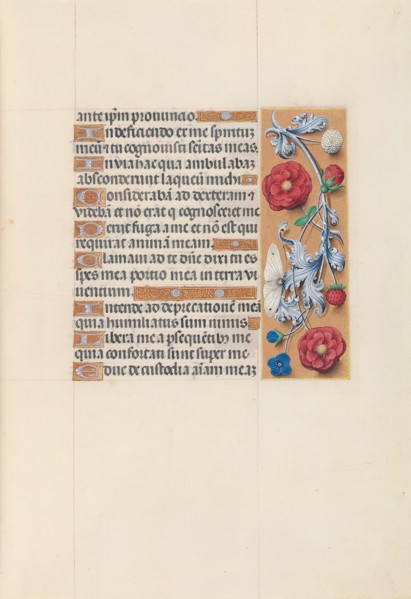 ante ipm pronuncio.
In deficiendo ex me spiritus
meus et tu cognovisti semitas meas.
In via hac qua ambulabaz
absconderunt laqueum michi
Considerabā ad dexteram et
videbā et nō erat q cognosceret me
Perijt fuga a me et nō est qui
requirat animā meam.
Clamavi ad te dne dixi tu es
spes mea portio mea in terra vi
uentium.
Intende ad deprecationem meā
quia humiliatus sum nimis.
Libera me a psequētibz me
quia confortati sunt super me
Educ de custodia aīam meaz